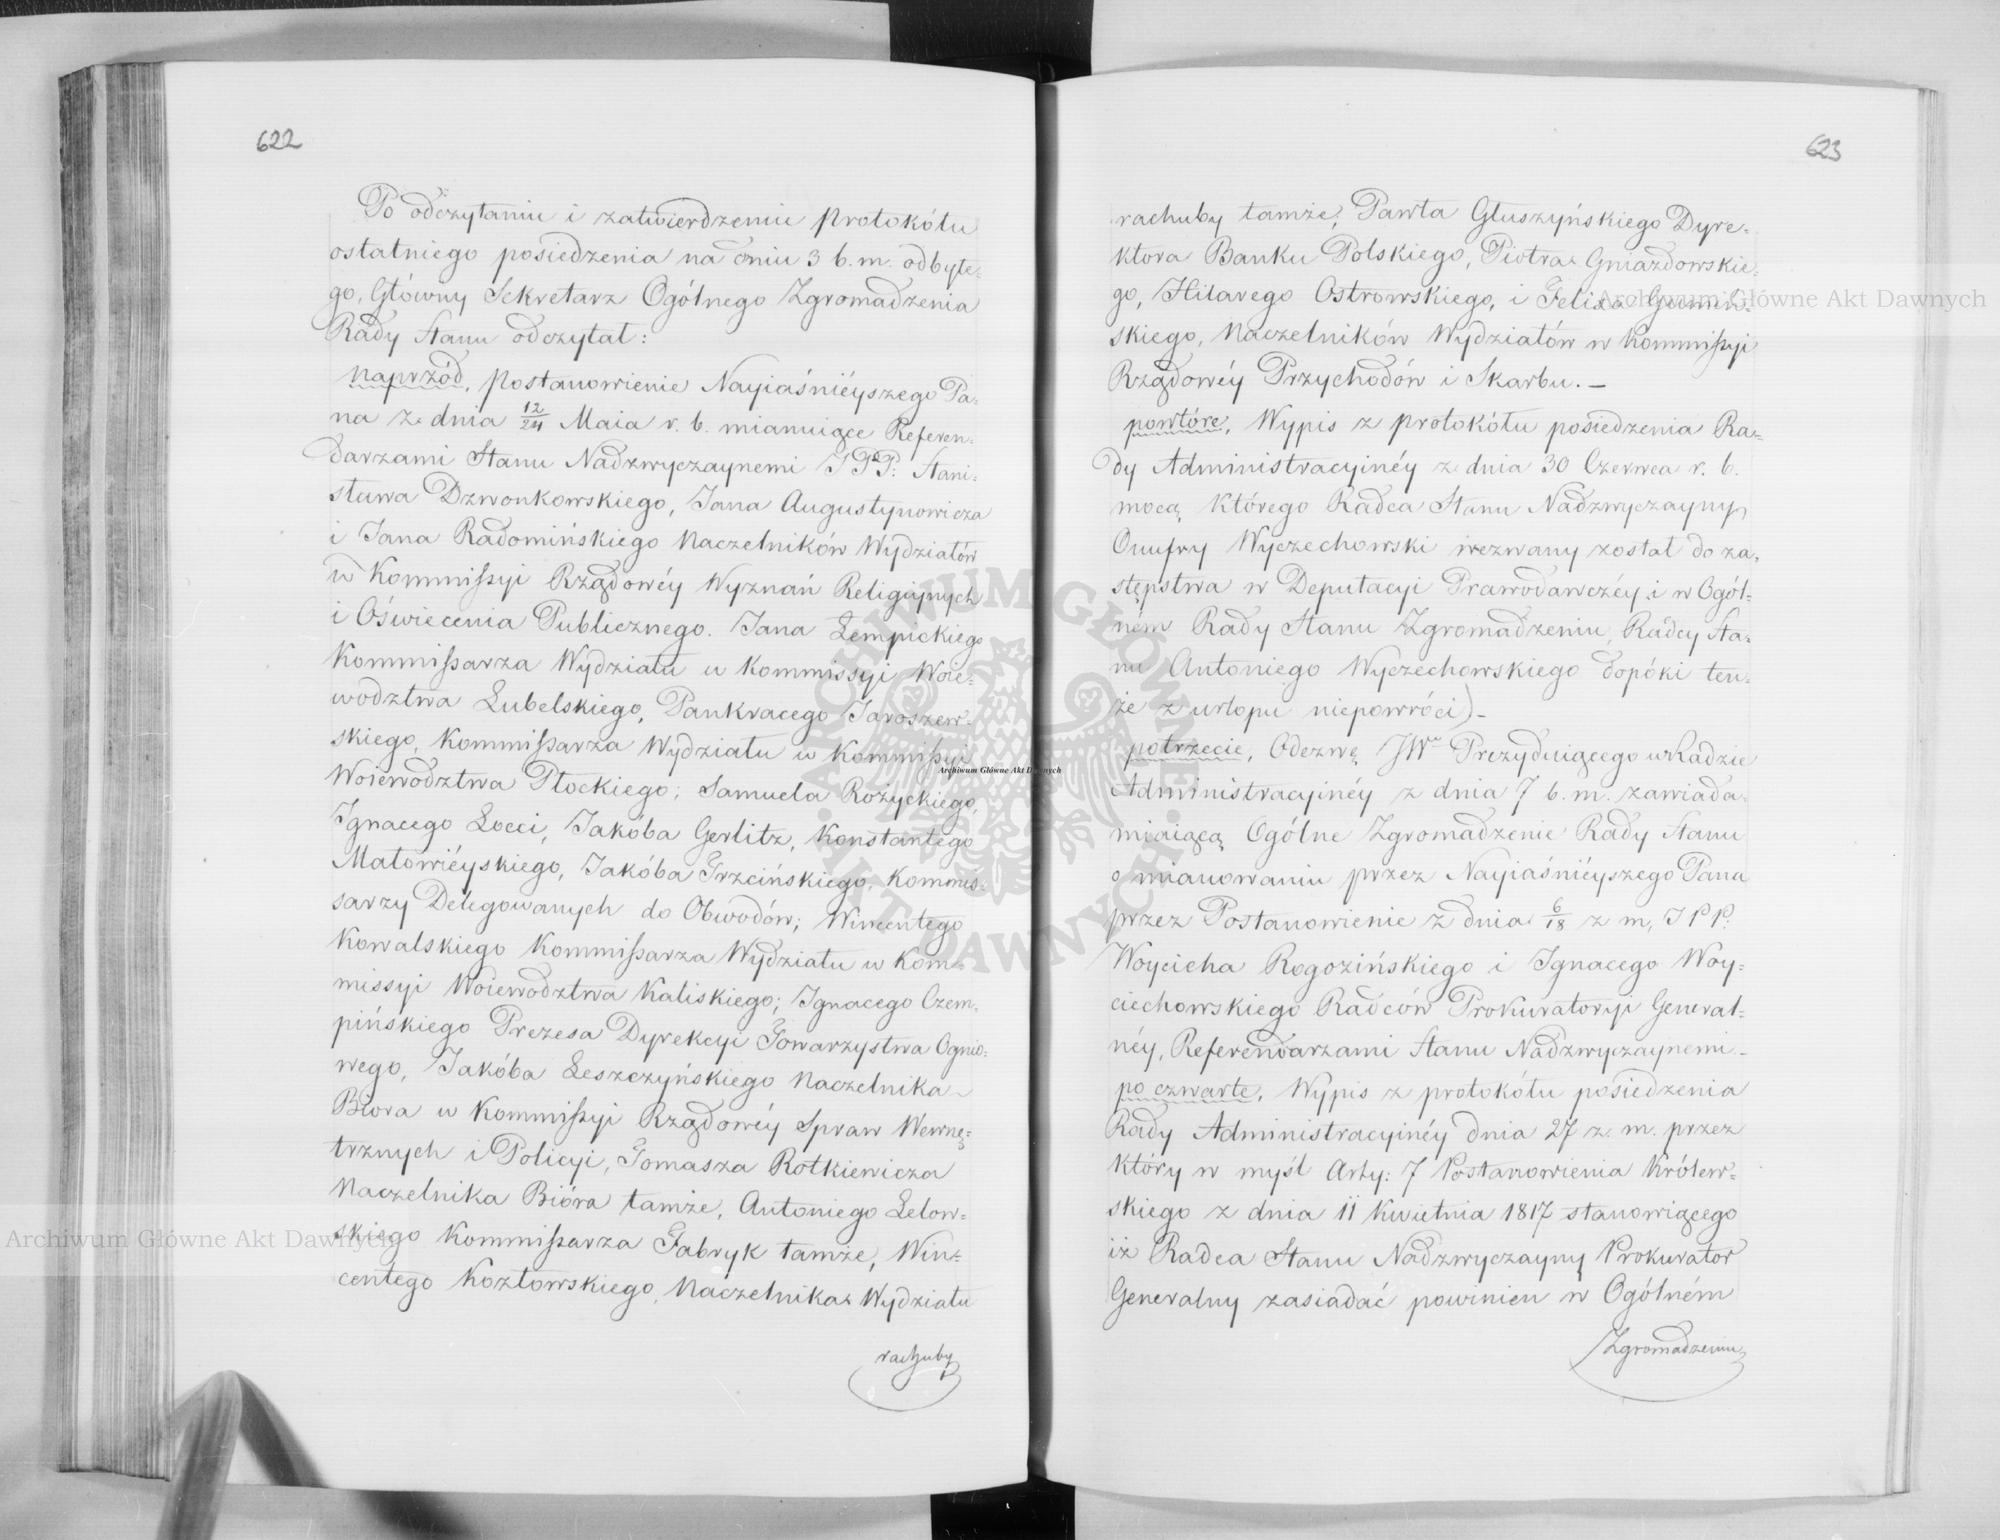 622
Po odczytaniu i zatwierdzeniu protokółu
ostatniego posiedzenia na dniu 3 b. m. odbyte-
go, Główny Sekretarz Ogólnego Zgromadzenia
Rady Stanu odczytał:
naprzód, postanowienie Nayiaśniéyszego Pa-
na z dnia 12/24 Maia r. b. mianuiące Referen-
darzami Stanu Nadzwyczaynemi JPP: Stani-
sława Dzwonkowskiego, Jana Augustynowicza
i Jana Radomińskiego Naczelników Wydziałów
w Kommissyi Rządowéy Wyznań Religijnych
i Oświecenia Publicznego. Jana Łempickiego
Kommissarza Wydziału w Kommissyi Woie-
wodztwa Lubelskiego, Pankracego Jaroszew-
skiego, Kommissarza Wydziału w Kommissyi
Woiewodztwa Płockiego; Samuela Rożyckiego,
Ignacego Locci, Jakóba Gerlitz, Konstantego
Małowiéyskiego, Jakóba Trzcińskiego, Kommis-
sarzy Delegowanych do Obwodów; Wincentego
Kowalskiego Kommissarza Wydziału w Kom-
missyi Woiewodztwa Kaliskiego; Ignacego Czem-
pińskiego Prezesa Dyrekcyi Towarzystwa Ognio-
wego, Jakóba Leszczyńskiego Naczelnika
Biora w Kommissyi Rządowéy Spraw Wewnę-
trznych i Policyi, Tomasza Rotkiewicza
Naczelnika Bióra tamże, Antoniego Lelow-
skiego Kommissarza Fabryk tamże, Win-
centego Kozłowskiego, Naczelnika Wydziału
rachuby
623
rachuby tamże, Pawła Głuszyńskiego Dyre-
ktora Banku Polskiego, Piotra Gniazdowskie-
go, Hilarego Ostrowskiego, i Felixa Gumiń-
skiego, Naczelników Wydziałów w Kommissyi
Rządowéy Przychodów i Skarbu. –
powtóre, Wypis z protokółu posiedzenia Ra-
dy Administracyinéy z dnia 30 Czerwca r. b.
mocą którego Radca Stanu Nadzwyczayny
Onufry Wyczechowski wezwany został do za-
stępstwa w Deputacyi Prawodawczéy i w Ogól-
ném Rady Stanu Zgromadzeniu, Radcy Sta-
nu Antoniego Wyczechowskiego dopóki ten-
że z urlopu niepowróci) –
potrzecie, Odezwę JW° Prezyduiącego w Radzie
Administracyinéy z dnia 7 b. m. zawiada-
miaiącą Ogólne Zgromadzenie Rady Stanu
o mianowaniu przez Nayiaśniéyszego Pana
przez Postanowienie z dnia 6/18 z m, JPP:
Woyciecha Rogozińskiego i Ignacego Woy-
ciechowskiego Radców Prokuratoryi General-
néy, Referendarzami Stanu Nadzwyczaynemi –
po czwarte, Wypis z protokółu posiedzenia
Rady Administracyinéy dnia 27 z. m. przez
który w myśl Arty: 7 Postanowienia Królew-
skiego z dnia 11 Kwietnia 1817 stanowiącego
iż Radca Stanu Nadzwyczayny Prokurator
Generalny zasiadać powinien w Ogólném
Zgromadzeniu
Archiwum Główne Akt Dawnych
Archiwum Główne Akt Dawnych
Archiwum Główne Akt Dawnych
Archiwum Główne Akt Dawnych
Archiwum Główne Akt Dawnych
ARCHIWUM GŁÓWNE AKT DAWNYCH